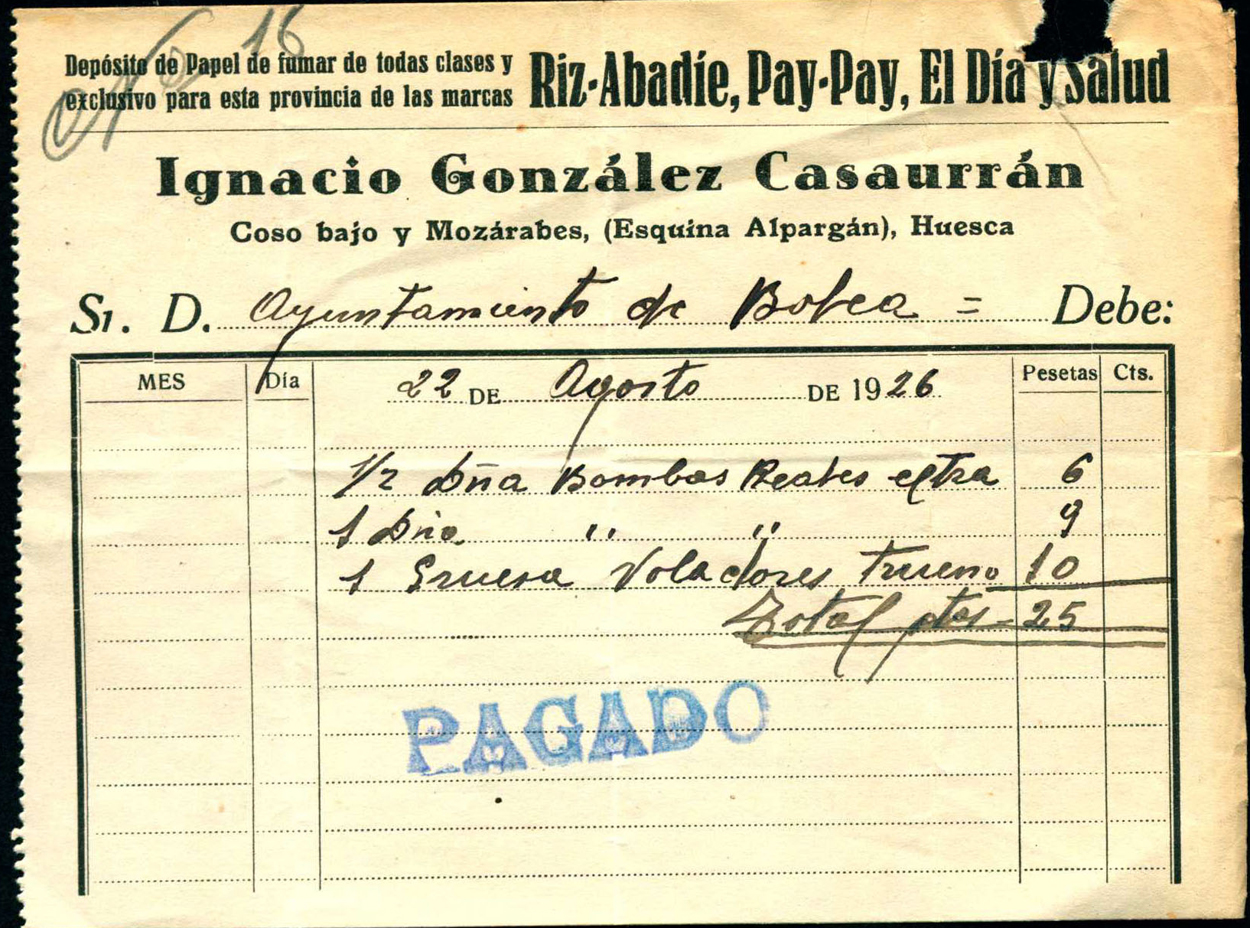 16
Depósito de Papel de fumar de todas clases y
exclusivo para esta provincia de las marcas
Riz-Abadíe, Pay-Pay, El Día y Salud
Ignacio González Casaurrán
Coso bajo y Mozárabes, (Esquina Alpargán), Huesca
Sr. D. Ayuntamiento de Bolea = Debe:
MES Día 22 DE Agosto DE 1926 Pesetas Cts.
1/2 Dña Bombas Reales extra 6
1 Dña " " 9
1 Gruesa Voladores trueno 10
Total ptas = 25
PAGADO